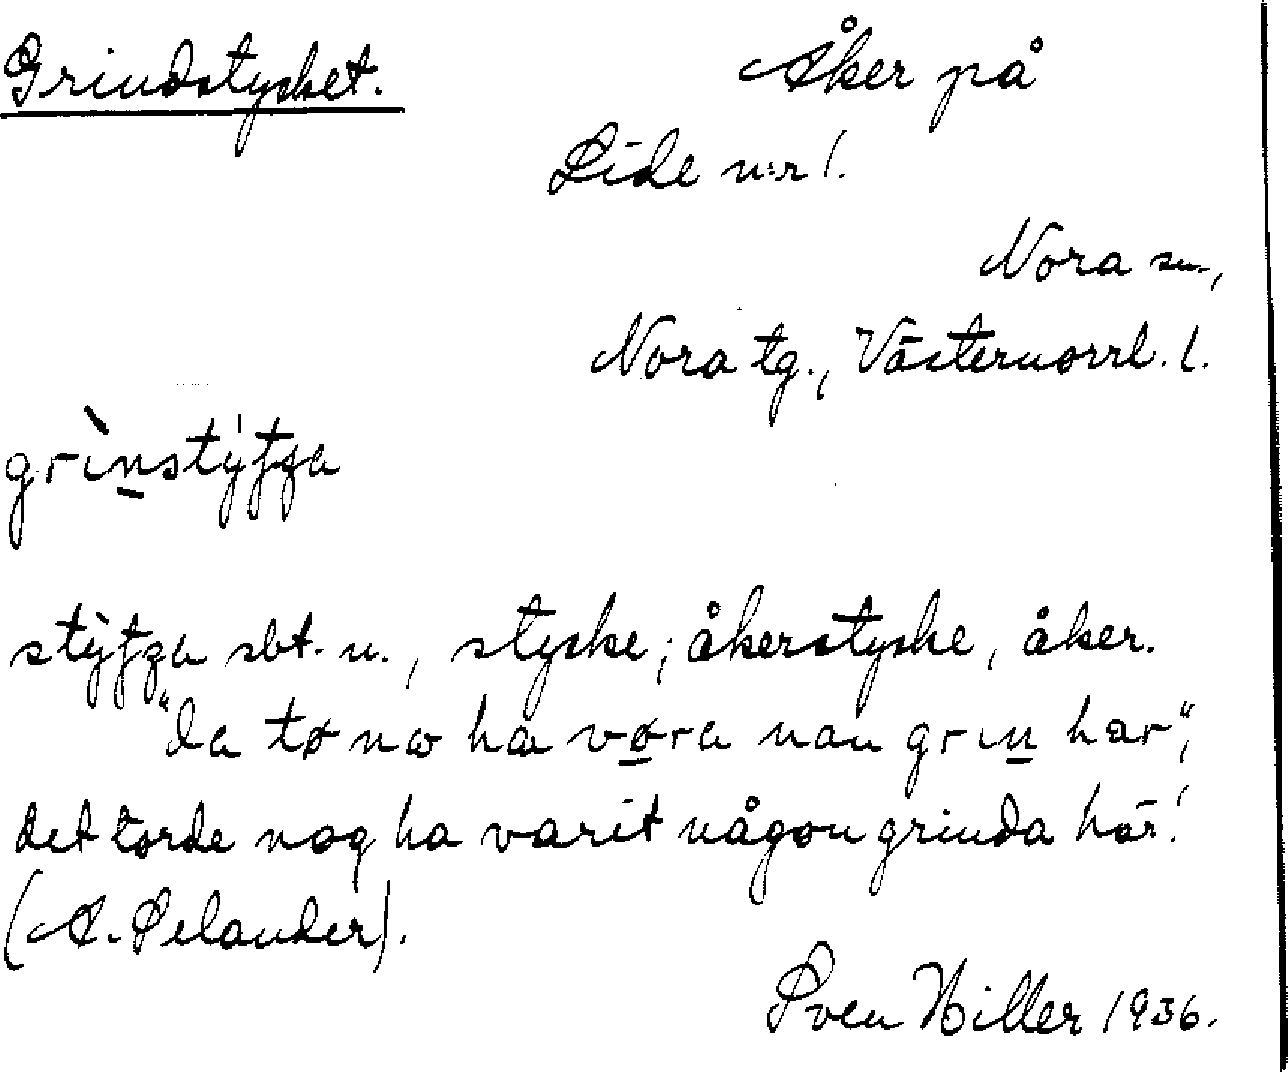 Grindstycket. Åker på
Lide n:r 1.
Nora sn.,
Nora tg., Västernorrl. l.
grìn̲stýtʒa
stỳtʒa sbt. n., stycke; åkerstycke, åker.
"da tø næ hæ vø̲ra nan grin̲ hær",
det torde nog ha varit någon grinda här!
(A. Selander).
Sven Hiller 1936.